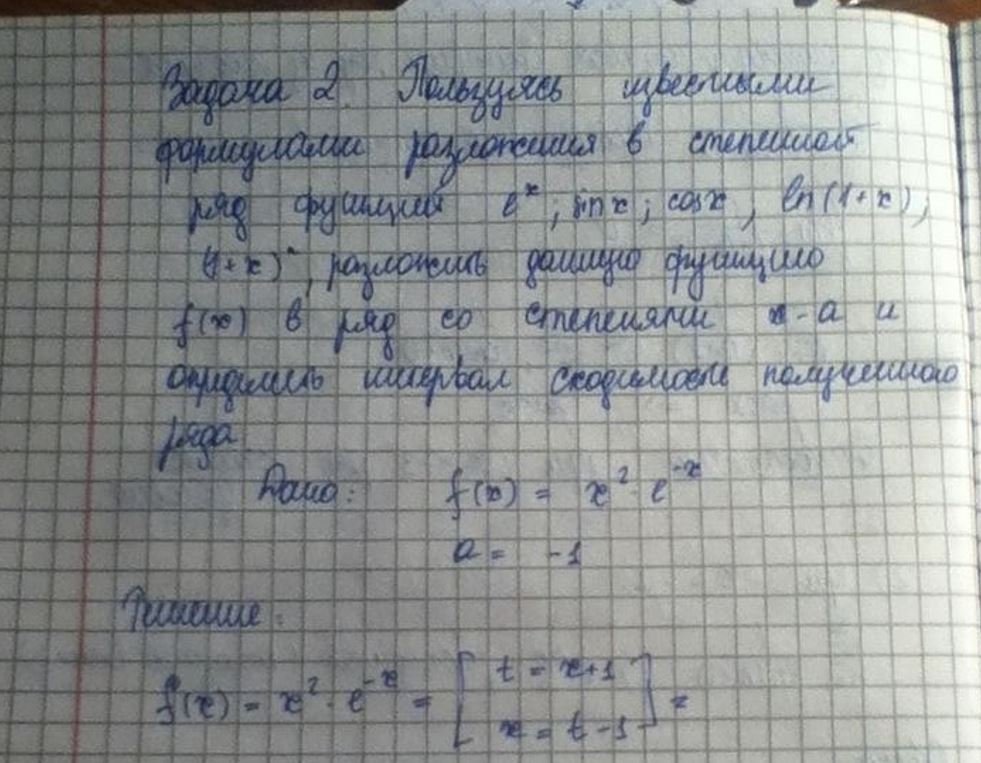 Задача 2. Пользуясь известными
формулами разложения в степенной
ряд функций e^x, sin x, cos x, ln(1+x),
(1+x)^, разложить данную функцию
f(x) в ряд со степенями x-a и
определить интервал сходимости полученного
ряда
Дано: f(x) = x^2 · e^{-x}
a = -1
Решение:
f(x) = x^2 · e^{-x} = [ t = x+1
x = t-1 ] =